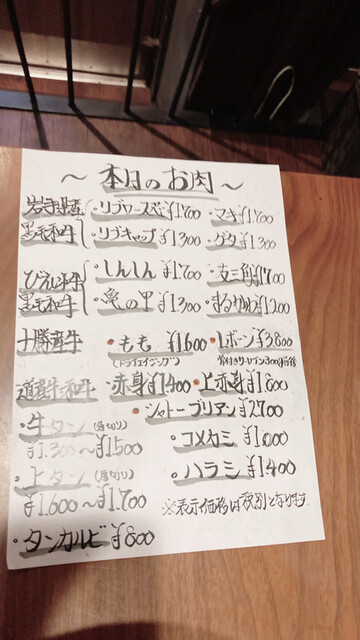 ～本日のお肉～
岩手県産 ・リブロース芯¥1700 ・マキ¥1700
黒毛和牛 ・リブキャップ¥1300 ・ゲタ¥1300
びえい和牛 ・しんしん¥1700 ・友三角¥1700
黒毛和牛 ・亀の甲¥1300 ・まるかわ¥1200
十勝産牛 ・もも¥1600 ・Lボーン¥3800
(ドライエイジング)
道産牛和牛 ・赤身¥1400 ・上赤身¥1800
・牛タン(薄切り) ・シャトーブリアン¥2700
¥1,300～¥1500 ・コメカミ¥1000
・上タン(厚切り) ・ハラミ¥1400
¥1,600～¥1,700 ※表示価格は税別となります
・タンカルビ¥800